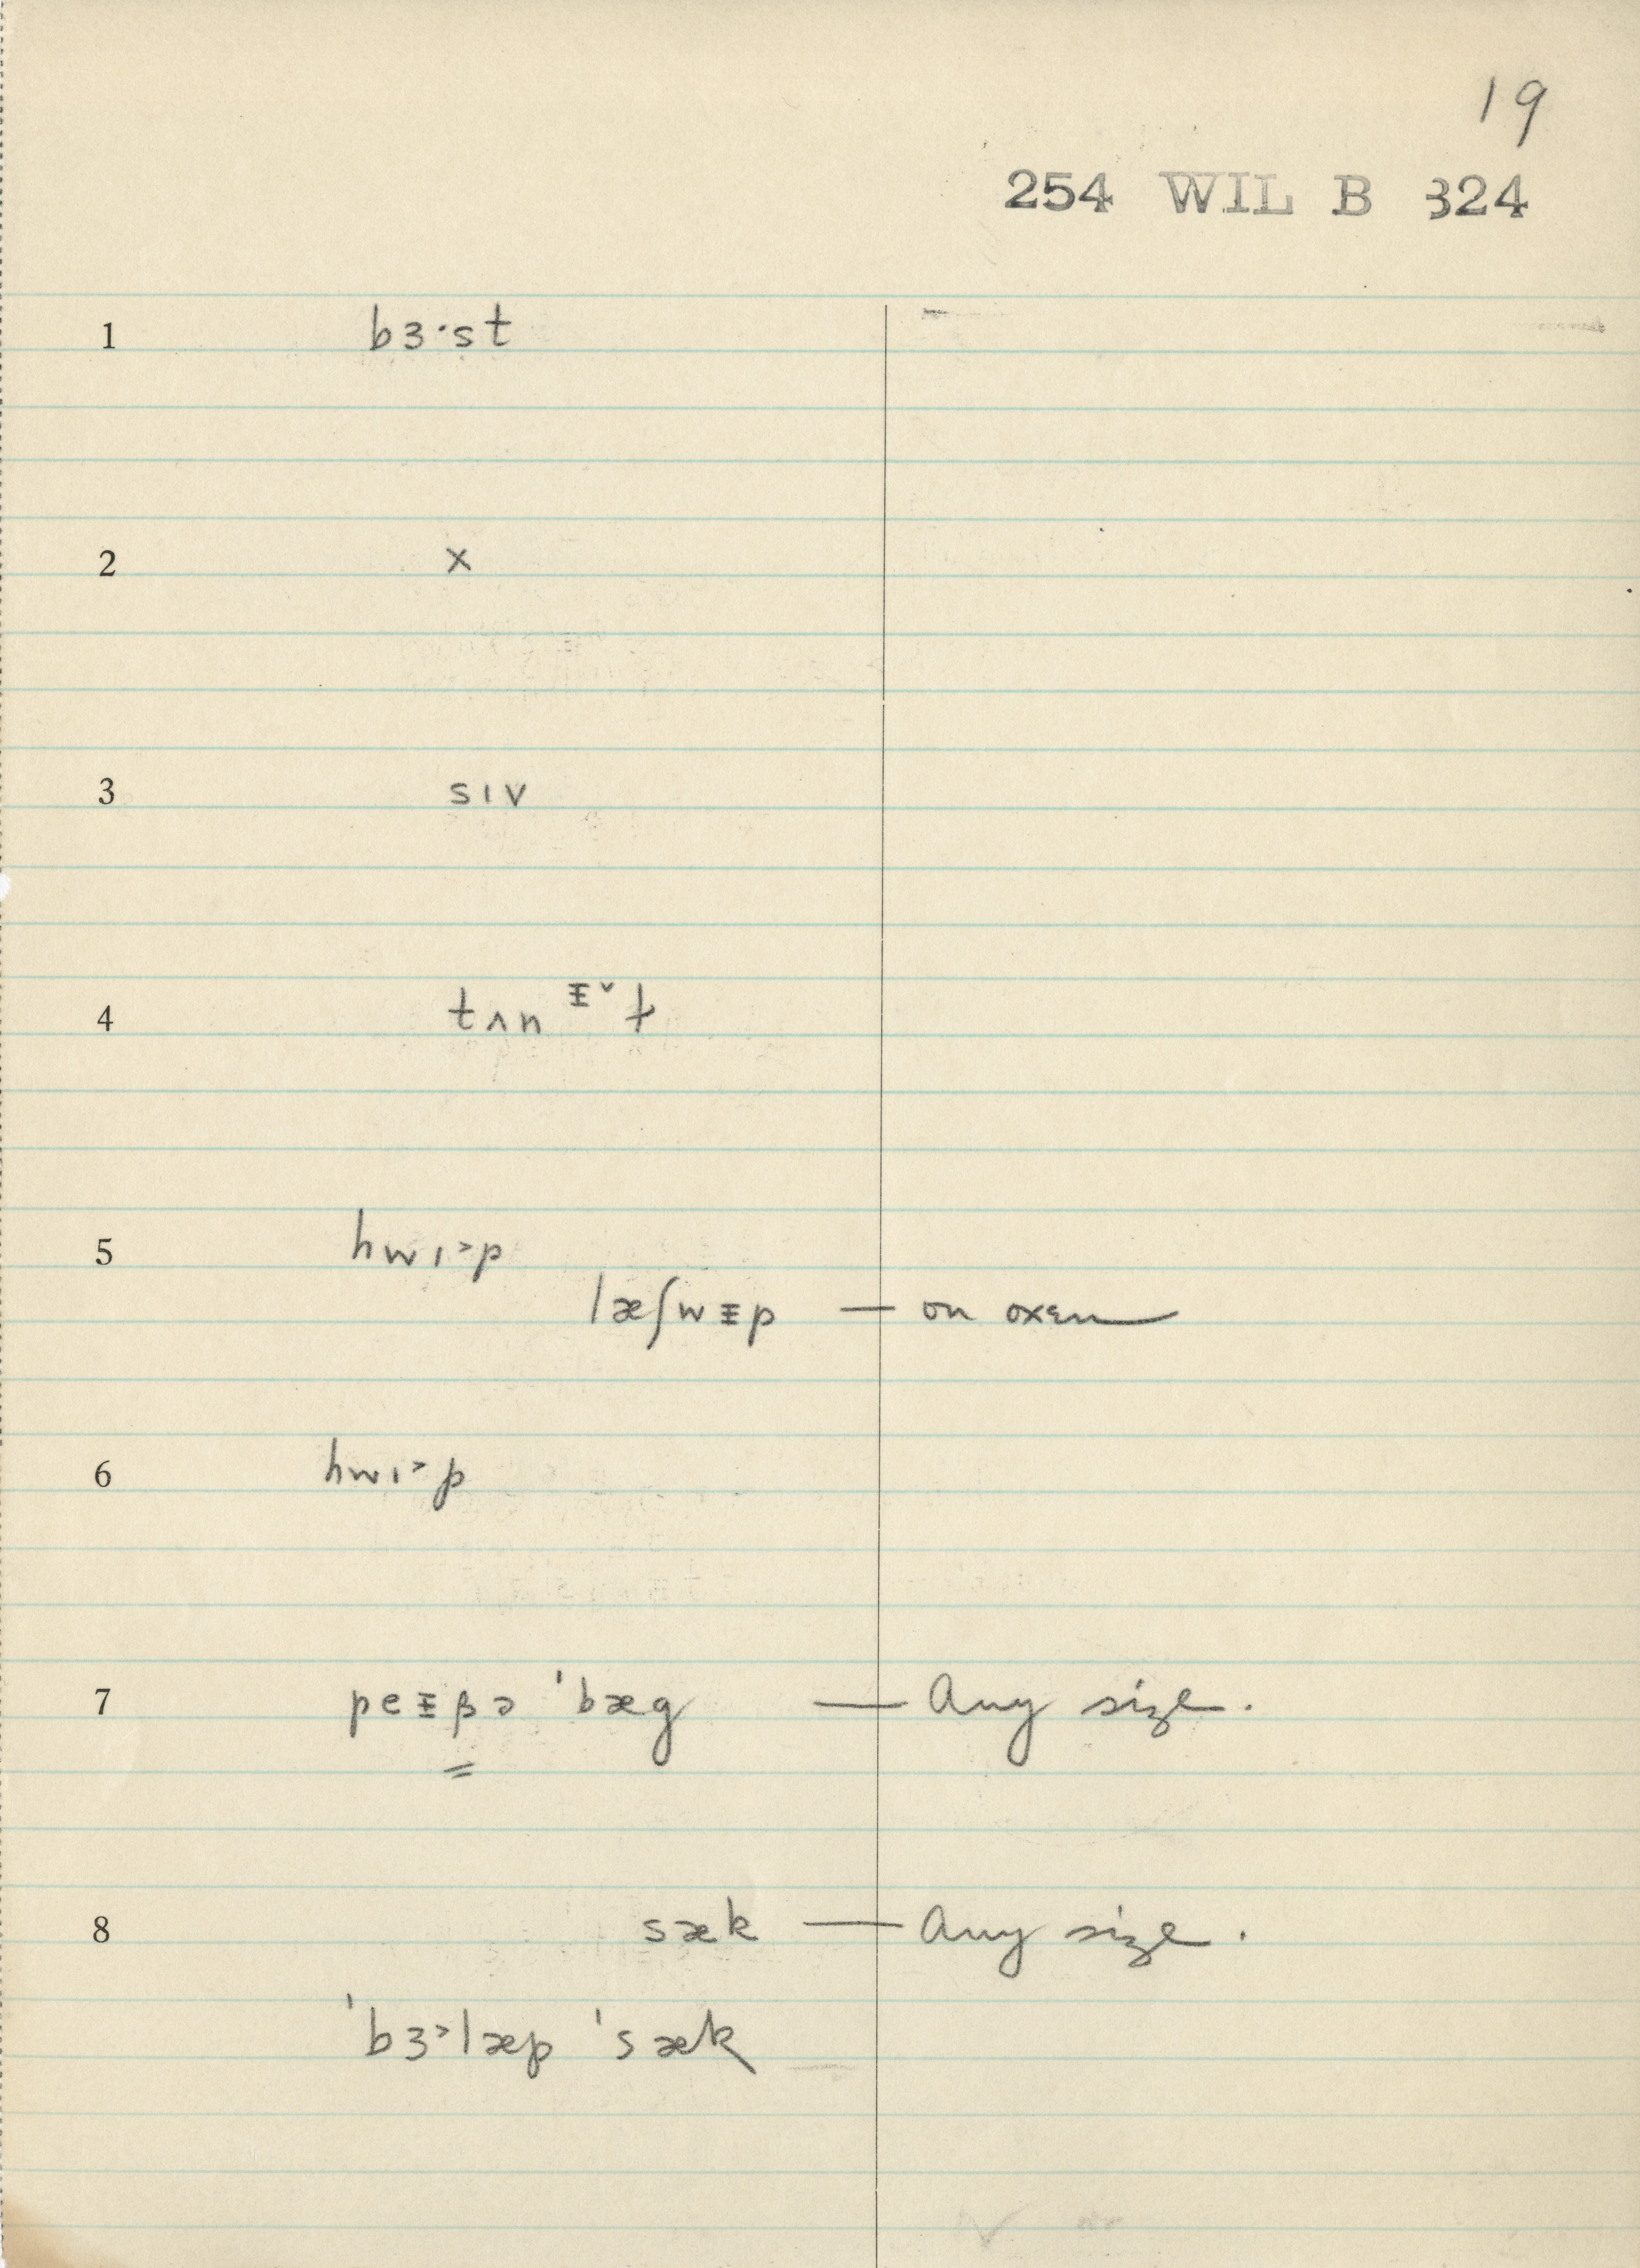 19
254 WIL B 324
1 bɜ·st
2 x
3 sɪv
4 tʌn ᵻ˅ɫ
5 hwɪ˃p
læʃwᵻp — on oxen
6 hwɪ˃p
7 peᵻβə ˈbæg — Any size.
8 sæk — Any size.
ˈbɜ˃læp ˈsæk